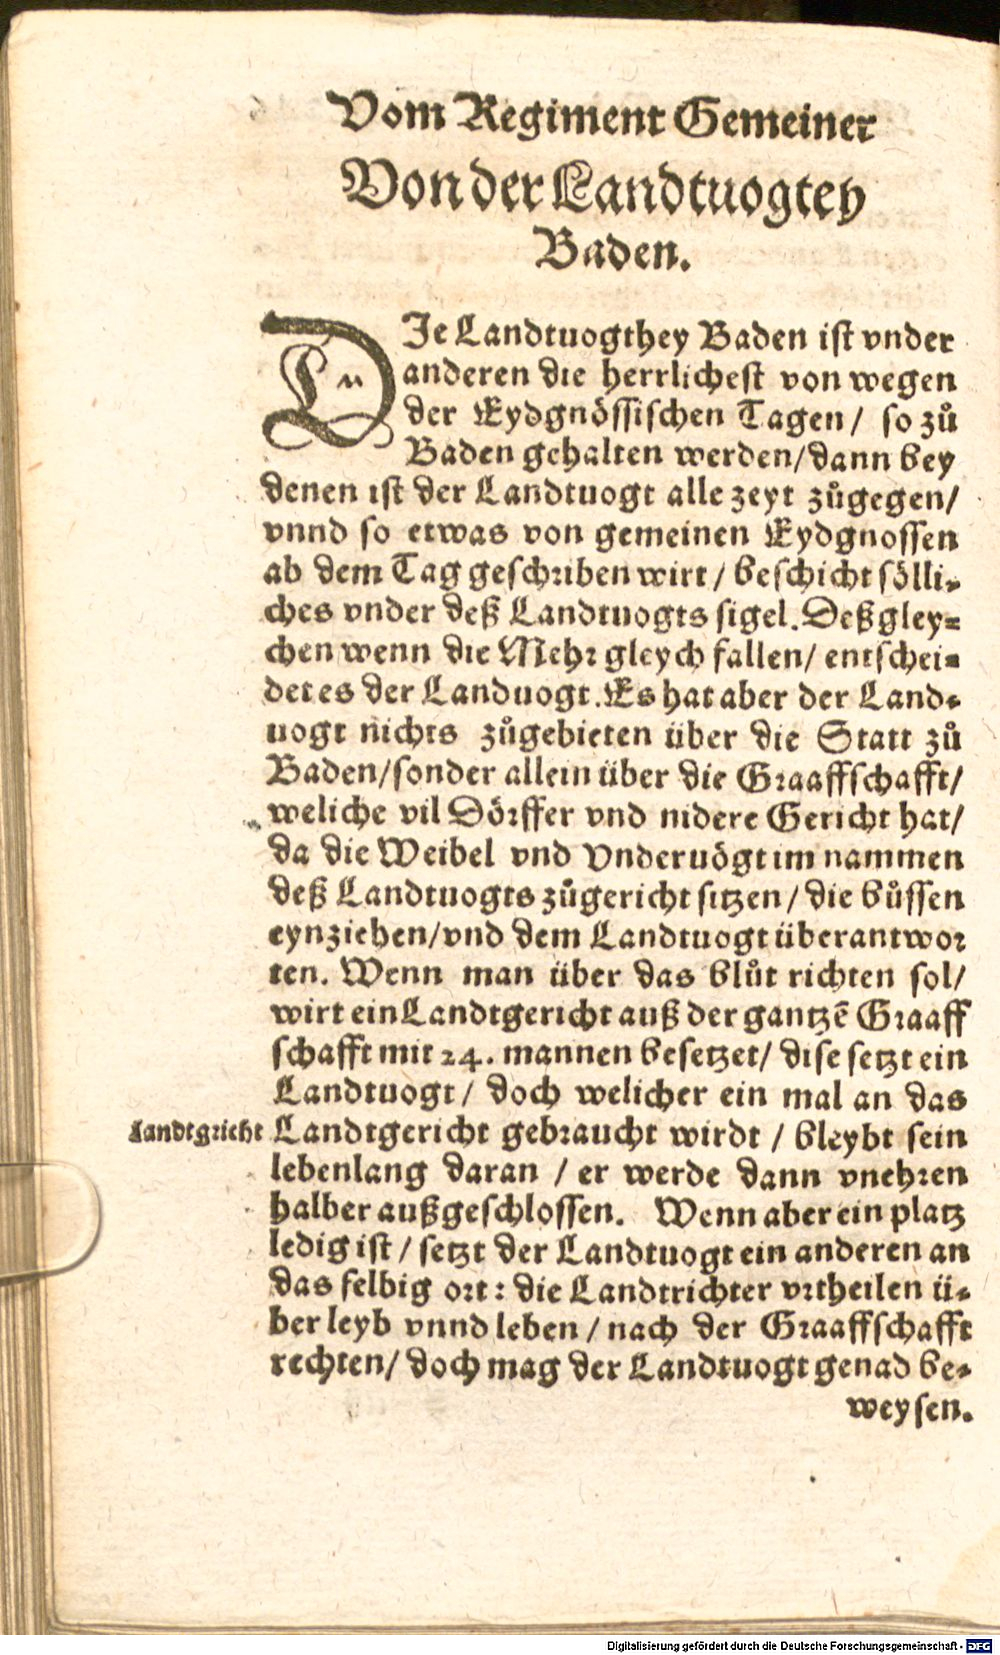 Vom Regiment Gemeiner
Von der Landtuogtey
Baden.
DJe Landtuogthey Baden ist vnder
anderen die herrlichest von wegen
der Eydgnössischen Tagen / so zů
Baden gehalten werden / dann bey
denen ist der Landtuogt alle zeyt zůgegen /
vnnd so etwas von gemeinen Eydgnossen
ab dem Tag geschriben wirt / beschicht sölli-
ches vnder deß Landtuogts sigel. Deßgley-
chen wenn die Mehr gleych fallen / entschei-
det es der Landuogt. Es hat aber der Land-
uogt nichts zůgebieten über die Statt zů
Baden / sonder allein über die Graaffschafft /
weliche vil Dörffer vnd nidere Gericht hat /
da die Weibel vnd Vnderuögt im nammen
deß Landtuogts zůgericht sitzen / die bůssen
eynziehen / vnd dem Landtuogt überantwor
ten. Wenn man über das blůt richten sol /
wirt ein Landtgericht auß der gantzē Graaff
schafft mit 24. mannen besetzet / dise setzt ein
Landtuogt / doch welicher ein mal an das
Landtgricht
Landtgericht gebraucht wirdt / bleybt sein
lebenlang daran / er werde dann vnehren
halber außgeschlossen. Wenn aber ein platz
ledig ist / setzt der Landtuogt ein anderen an
das selbig ort : die Landtrichter vrtheilen ü-
ber leyb vnnd leben / nach der Graaffschafft
rechten / doch mag der Landtuogt genad be-
weysen.
Digitalisierung gefördert durch die Deutsche Forschungsgemeinschaft - DFG